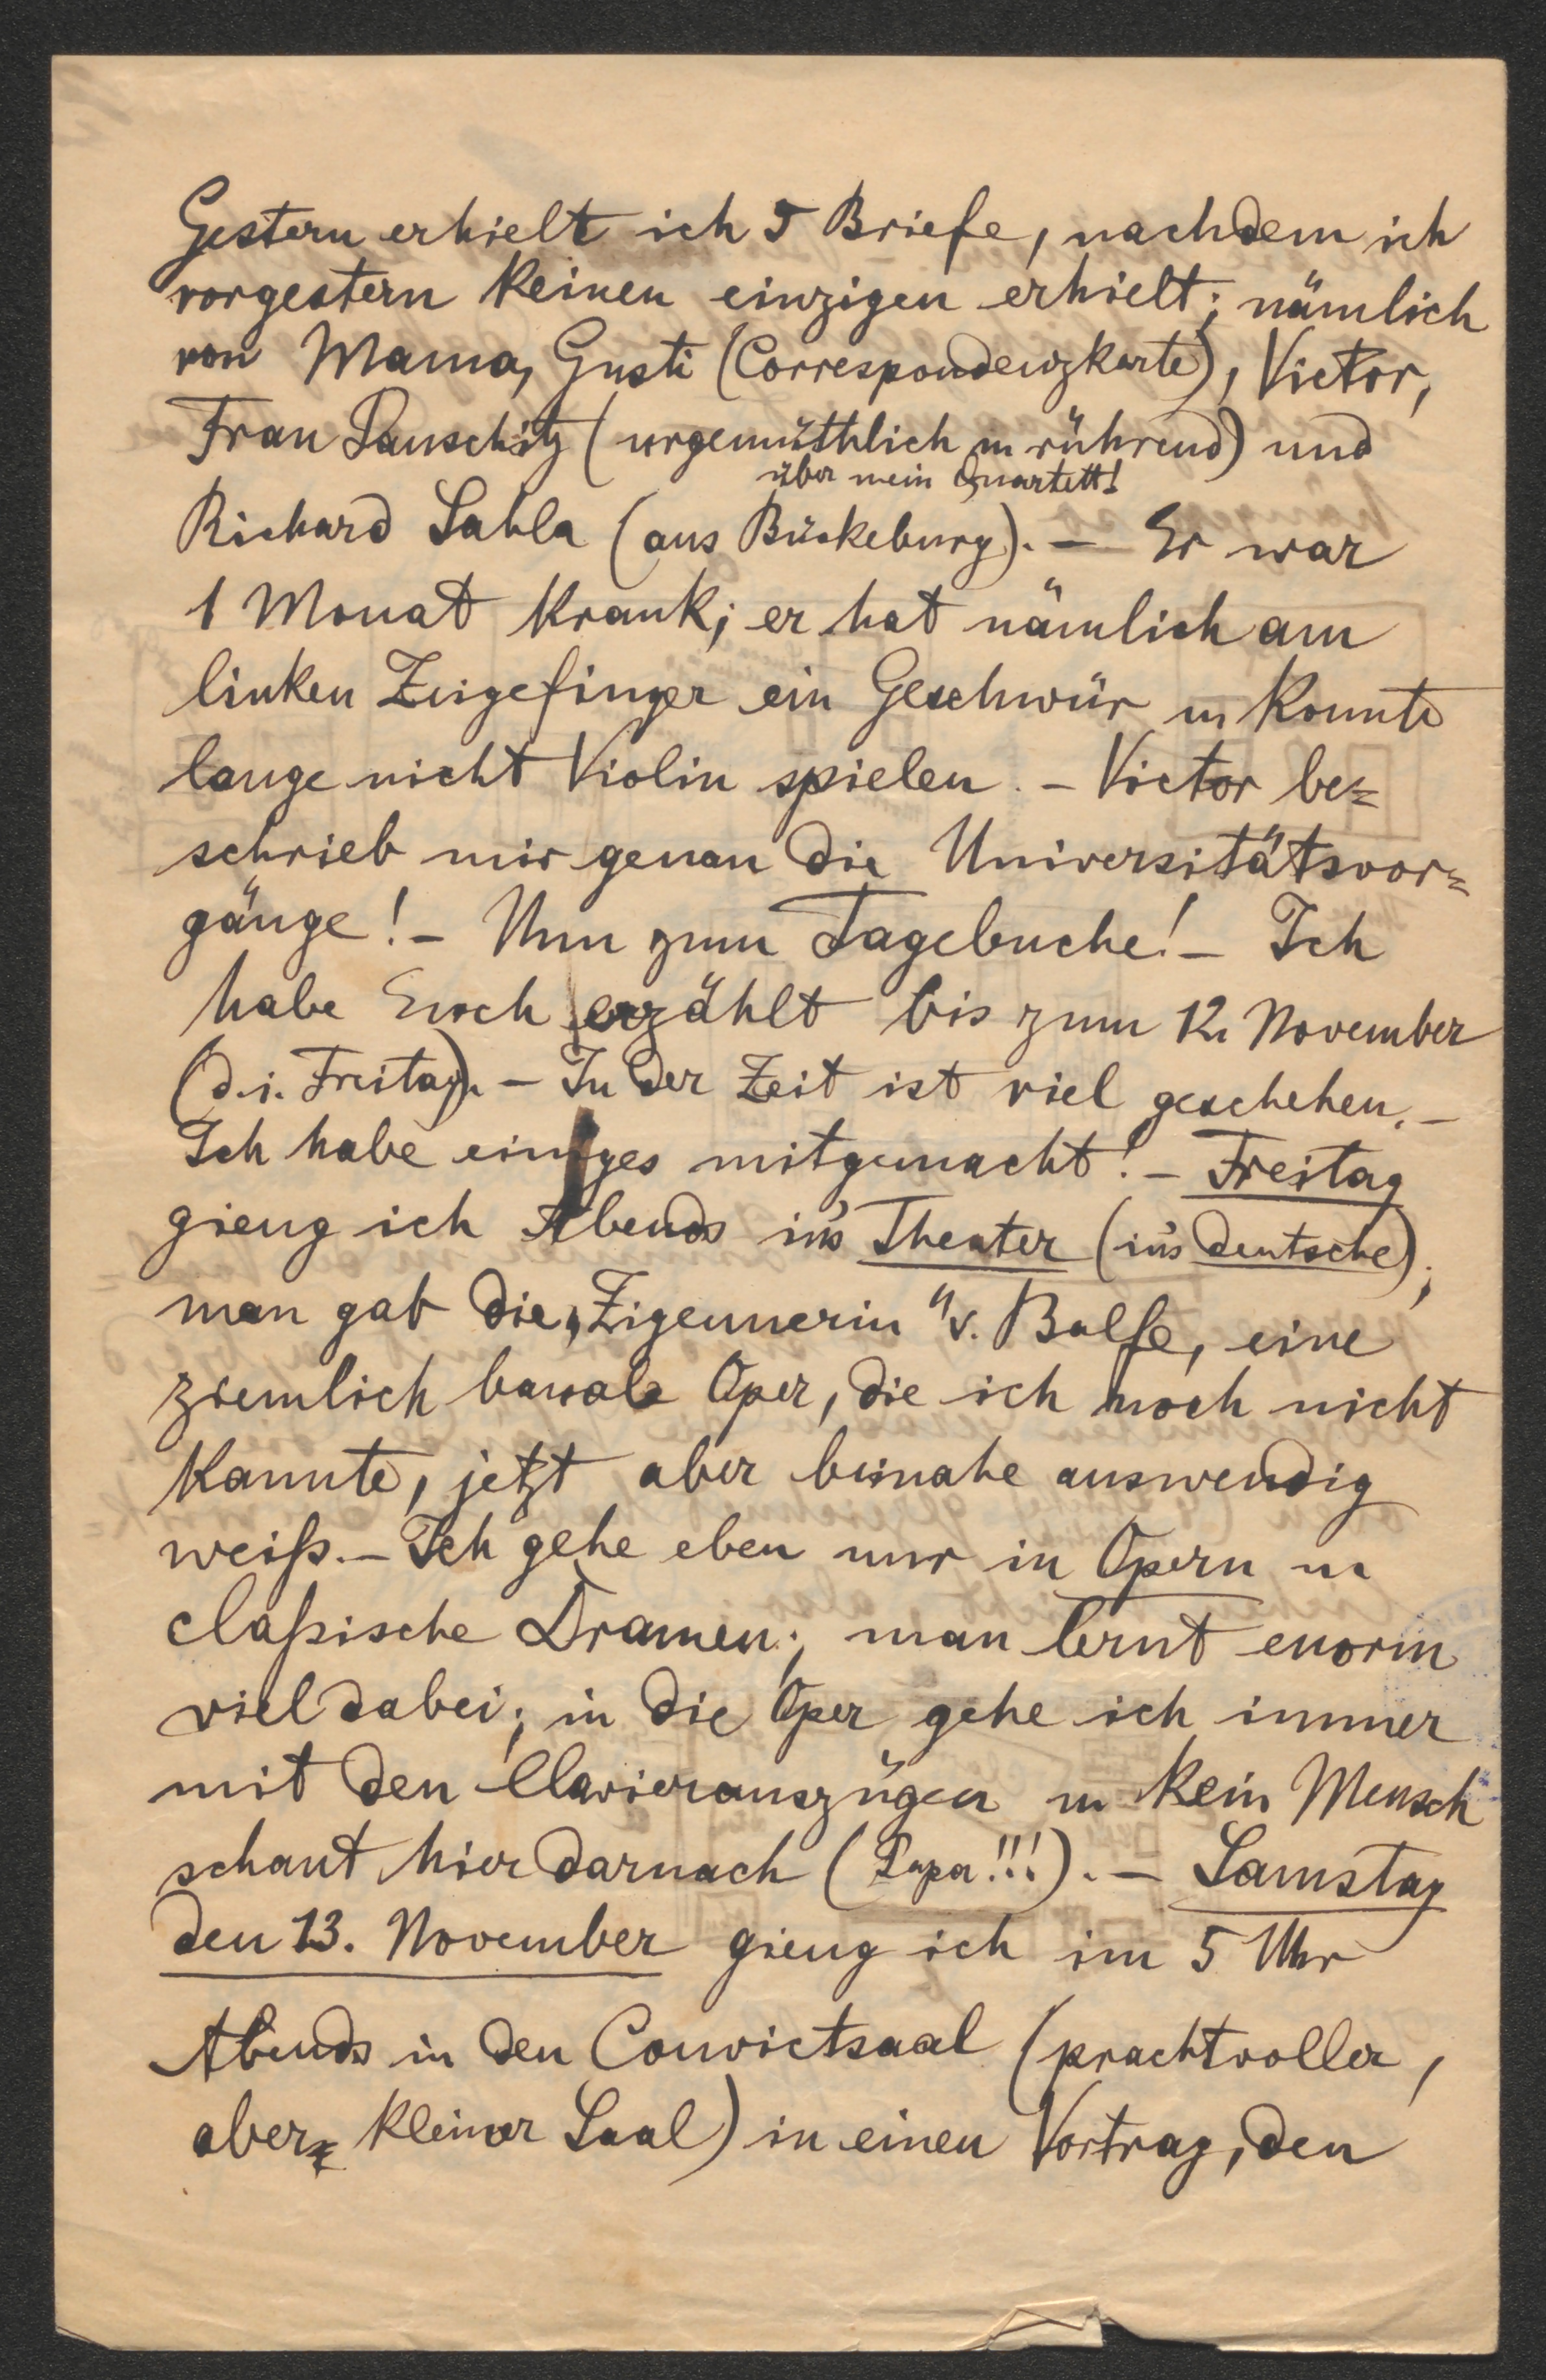 Gestern erhielt ich 5 Briefe, nachdem ich
vorgestern keinen einzigen erhielt; nämlich
von Mama, Gusti (Correspondenzkarte), Victor,
Frau Pauschitz (urgemüthlich u rührend) und
über mein Quartett!
Richard Sahla (aus Bückeburg). – Er war
1 Monat krank; er hat nämlich am
linken Zeigefinger ein Geschwür u konnte
lange nicht Violin spielen. – Victor be=
schrieb mir genau die Universitätsvor=
gänge! – Nun zum Tagebuche! – Ich
habe Euch erzählt bis zum 12. November
(d.i. Freitag). – In der Zeit ist viel geschehen. –
Ich habe einiges mitgemacht! – Freitag
gieng ich Abends in's Theater (in's deutsche);
man gab die „Zigeunerin" v. Balfe, eine
ziemlich banale Oper, die ich noch nicht
kannte, jetzt aber beinahe auswendig
weiß. – Ich gehe eben nur in Opern u
claßische Dramen; man lernt enorm
viel dabei; in die Oper gehe ich immer
mit den Clavierauszügen u kein Mensch
schaut hier darnach (Papa!!!). – Samstag
den 13. November gieng ich um 5 Uhr
Abends in den Convictsaal (prachtvoller,
aber kleiner Saal) in einen Vortrag, den